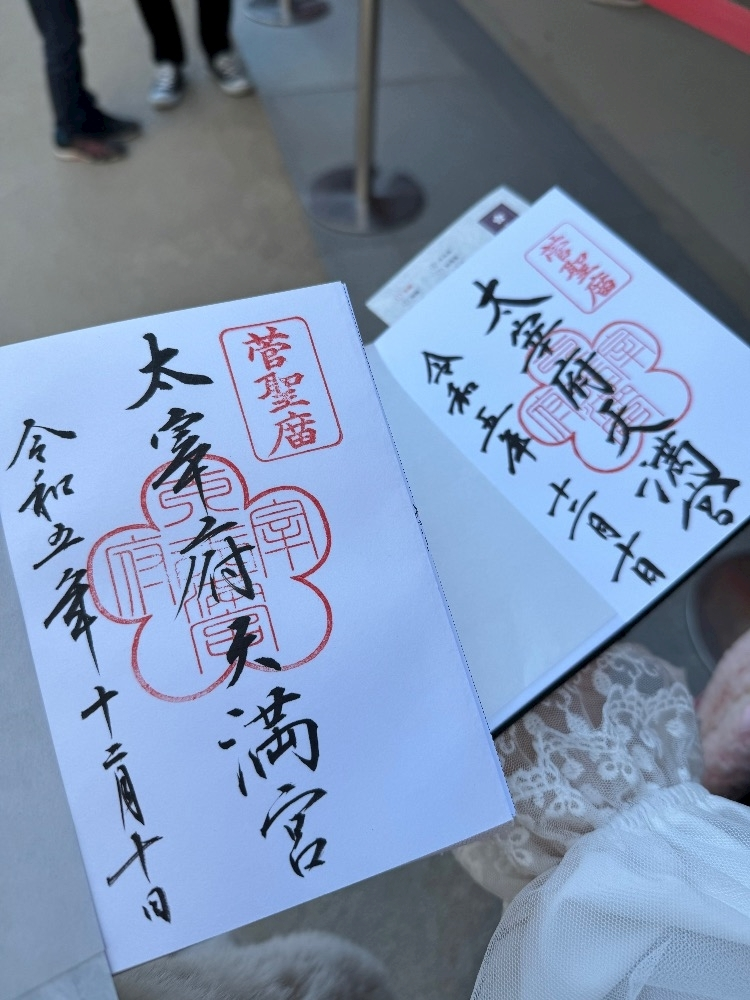 菅聖廟
太宰府天満宮
令和五年十二月十日
菅聖廟
太宰府天満宮
令和五年十二月十日